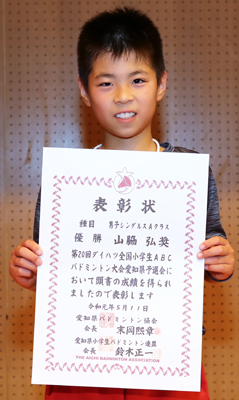 表彰状
種目 男子シングルスAクラス
優勝 山脇 弘奨
第20回ダイハツ全国小学生ABC
バドミントン大会愛知県予選会に
おいて頭書の成績を得られ
ましたので表彰します
令和元年5月11日
愛知県バドミントン協会
会長 末岡熙章
愛知県小学生バドミントン連盟
会長 鈴木正一
THE AICHI BADMINTON ASSOCIATION